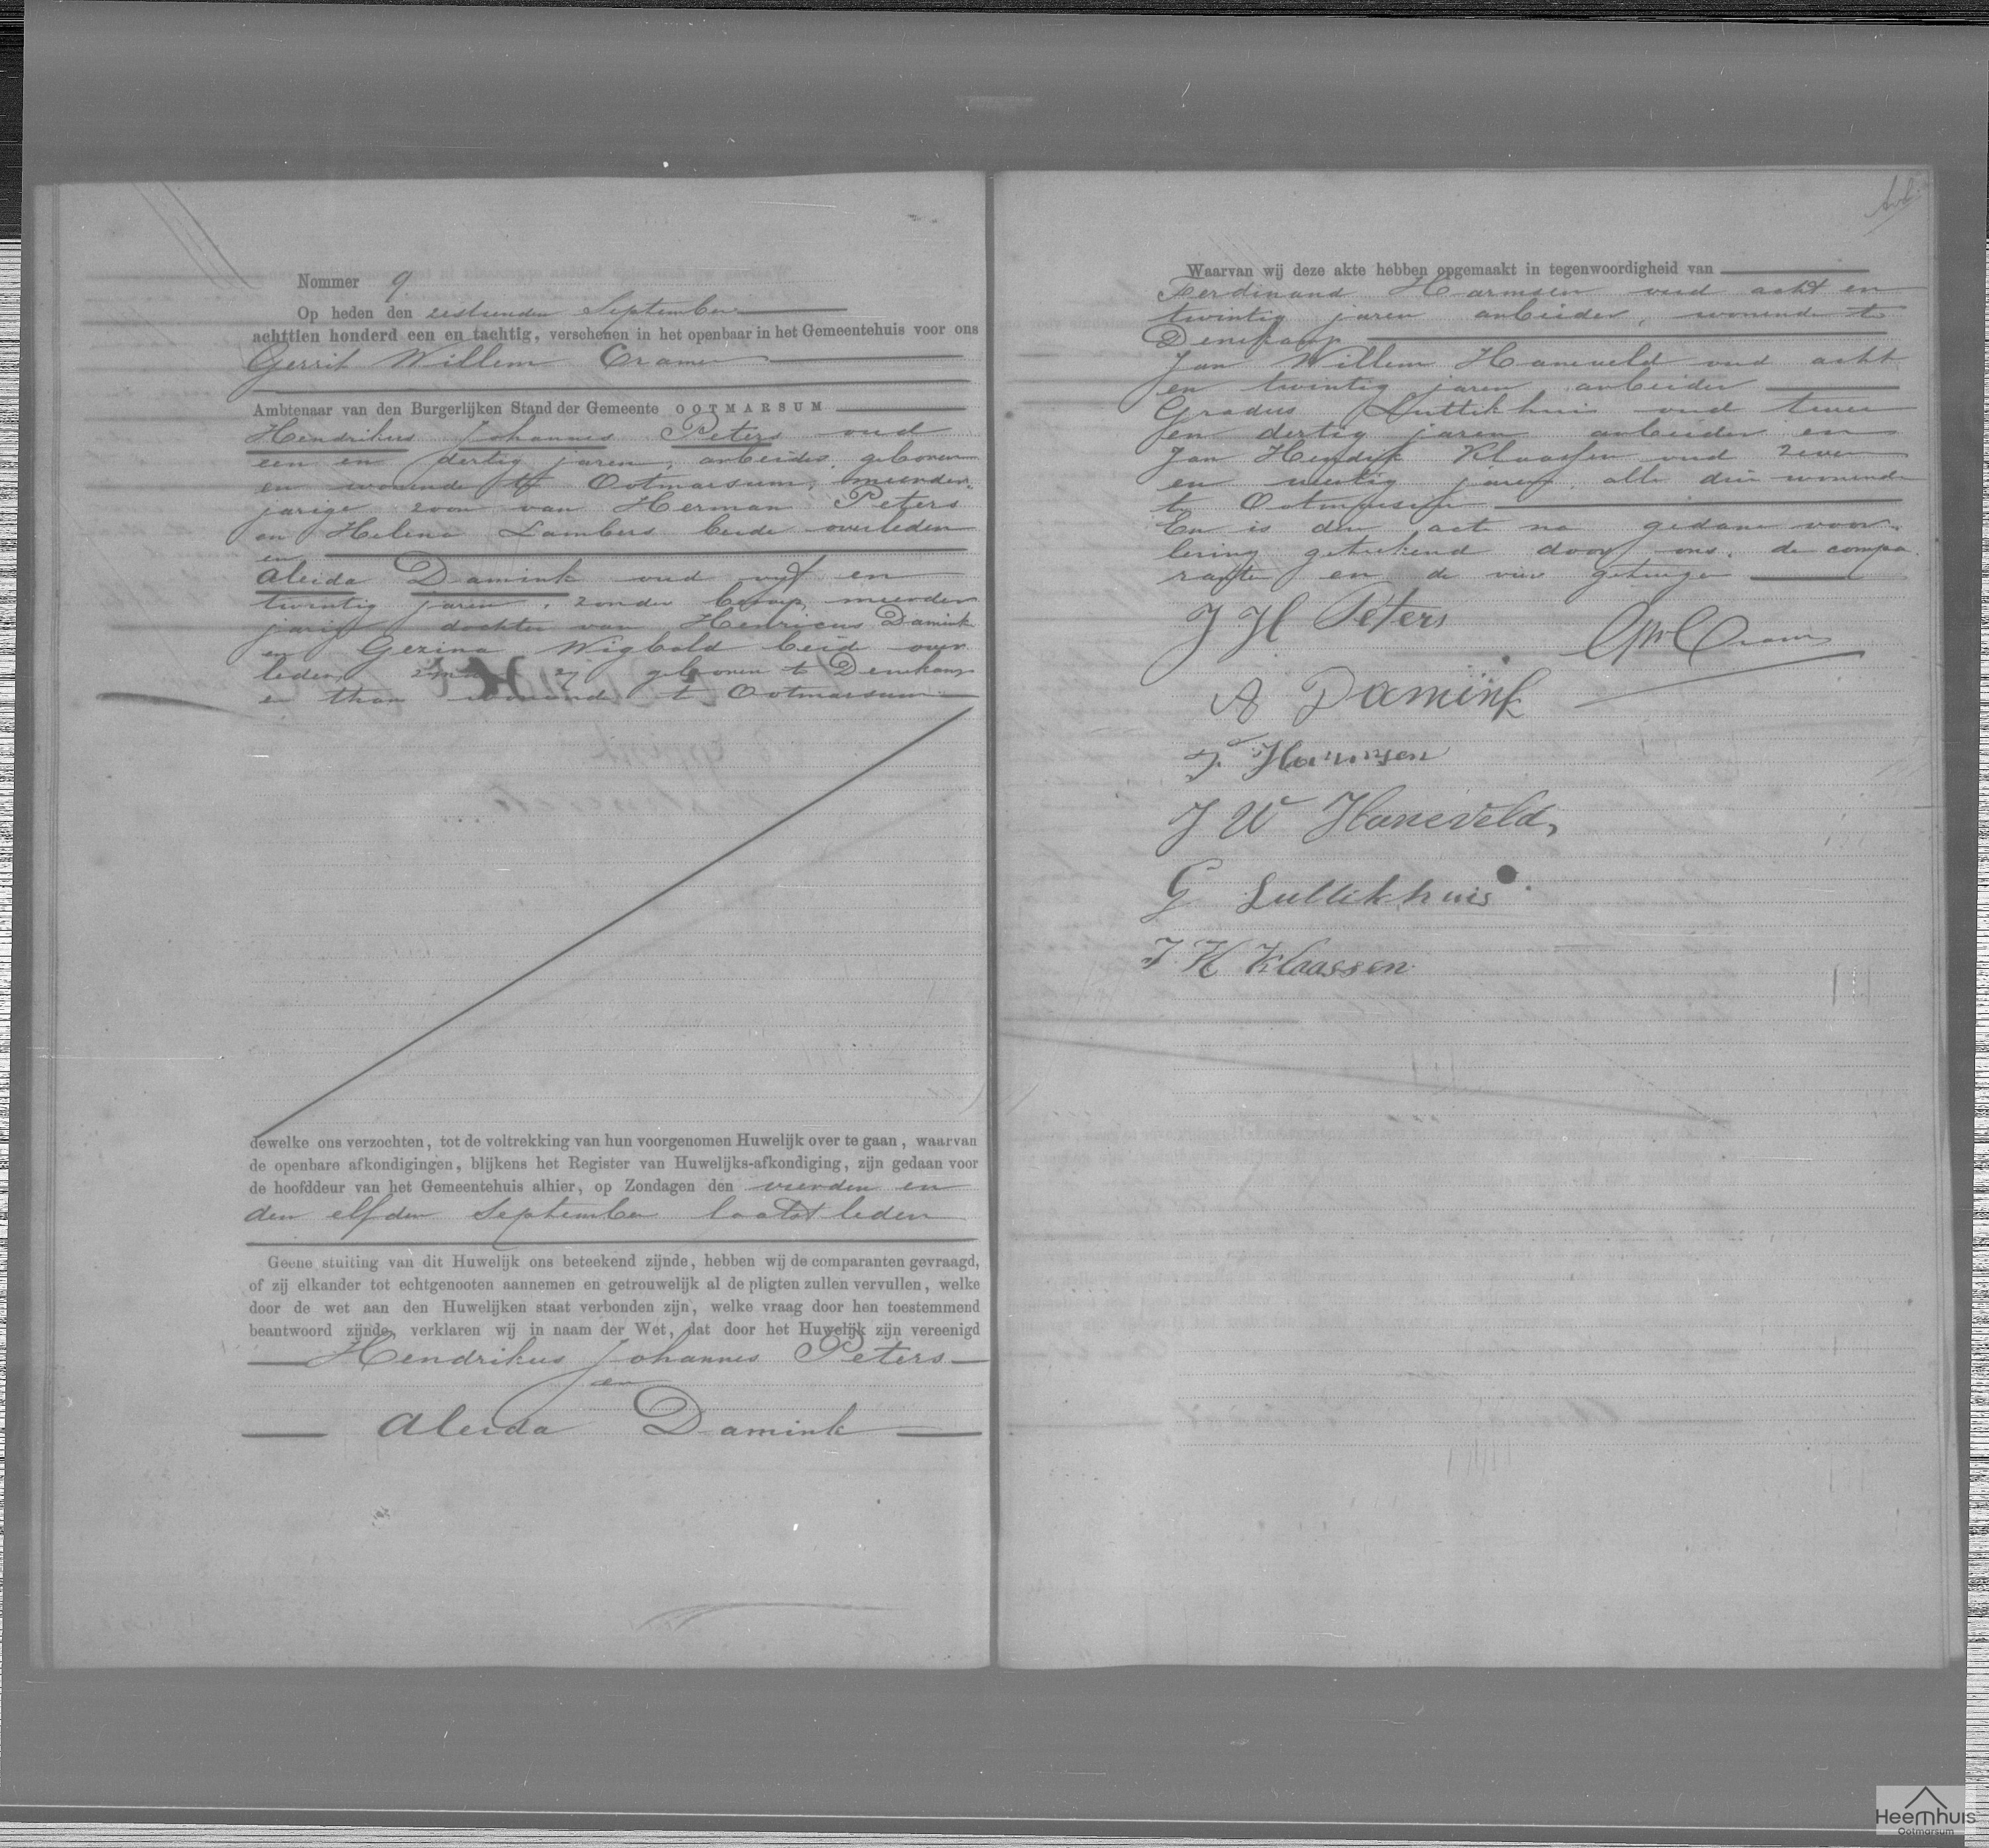 Nommer 9
Op heden den zestienden September
achttien honderd een en tachtig, verschenen in het openbaar in het Gemeentehuis voor ons
Gerrit Willem Cramer
Ambtenaar van den Burgerlijken Stand der Gemeente OOTMARSUM
Hendrikus Johannes Peters oud
een en dertig jaren, arbeider, geboren
en wonende te Ootmarsum, meerder-
jarige zoon van Herman Peters
en Helena Lambers beide overleden
en
Aleida Damink oud vijf en
twintig jaren, zonder beroep, meerder
jarige dochter van Henricus Damink
en Gezina Wigbold beide over
leden, zij geboren te Denekamp
en thans wonende te Ootmarsum
dewelke ons verzochten, tot de voltrekking van hun voorgenomen Huwelijk over te gaan, waarvan
de openbare afkondigingen, blijkens het Register van Huwelijks-afkondiging, zijn gedaan voor
de hoofddeur van het Gemeentehuis alhier, op Zondagen den vierden en
den elfden September laatstleden
Geene stuiting van dit Huwelijk ons beteekend zijnde, hebben wij de comparanten gevraagd,
of zij elkander tot echtgenooten aannemen en getrouwelijk al de pligten zullen vervullen, welke
door de wet aan den Huwelijken staat verbonden zijn, welke vraag door hen toestemmend
beantwoord zijnde, verklaren wij in naam der Wet, dat door het Huwelijk zijn vereenigd
Hendrikus Johannes Peters
en
Aleida Damink
Waarvan wij deze akte hebben opgemaakt in tegenwoordigheid van
Ferdinand Harmsen oud acht en
twintig jaren arbeider, wonende te
Denekamp
Jan Willem Haneveld oud acht
en twintig jaren, arbeider
Gradus Luttikhuis oud twee
en dertig jaren arbeider en
Jan Hendrik Klaassen oud zeven
en jaren, alle drie wonende
te Ootmarsum
En is deze acte na gedane voor-
lezing geteekend door ons, de compa-
ranten en de vier getuigen
J H Peters
GW Cramer
A Damink
F Harmsen
J W Haneveld,
G Luttikhuis
J. H Klaassen
Heemhuis
Ootmarsum